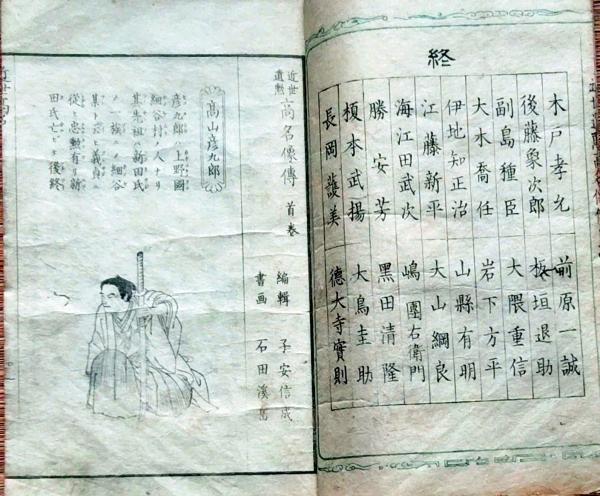 木戸孝允 前原一誠
後藤象次郎 板垣退助
副島種臣 大隈重信
大木喬任 岩下方平
伊地知正治 山縣有明
江藤新平 大山綱良
海江田武次 嶋團右衛門
勝安芳 黒田清隆
榎本武揚 大鳥圭助
長岡護美 德大寺實則
終
近世遺勲 高名像傳 首巻
編輯 子安信成
書画 石田溪
高山彦九郎
彦九郎ハ上野國
細谷村ノ人ナリ
其先祖ハ新田氏
ノ族ニ 細谷
某ト云ヒ義貞ニ
從ヒ忠勲有リ新
田氏亡ビ 後終